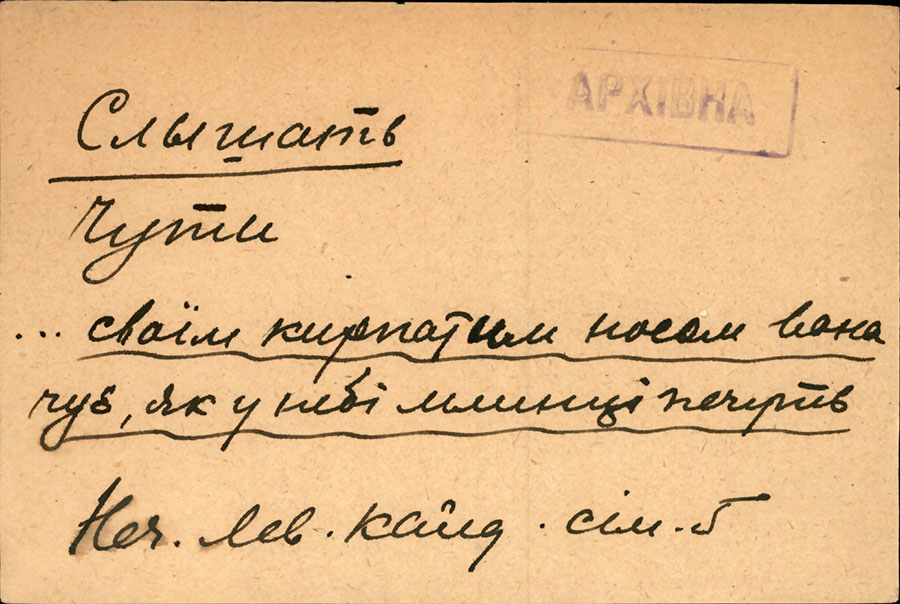 АРХІВНА
Слышать
Чути
... своїм кирпатим носом вона
чує, як у небі млинці печуть
Неч. Лев. Кайд. сім. 5